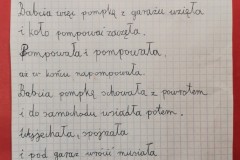 Babcia więc pompkę z garażu wzięła
i koło pompować zaczęła.
Pompowała i pompowała,
aż w końcu napompowała.
Babcia pompkę schowała z powrotem
i do samochodu wsiadła potem.
Wyjechała, spojrzała
i pod garaż wrócić musiała